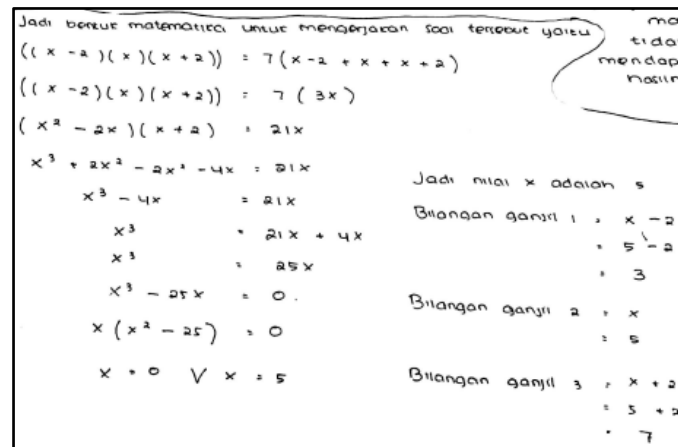 Jadi bentuk matematika untuk mengerjakan soal tersebut yaitu
((x - 2)(x)(x + 2)) = 7(x - 2 + x + x + 2)
((x - 2)(x)(x + 2)) = 7 (3x)
(x² - 2x)(x + 2) = 21x
x³ + 2x² - 2x² - 4x = 21x
x³ - 4x = 21x
x³ = 21x + 4x
x³ = 25x
x³ - 25x = 0
x(x² - 25) = 0
x = 0 V x = 5
ma
tida
mendap
hasiln
Jadi nilai x adalah 5
Bilangan ganjil 1 = x - 2
= 5 - 2
= 3
Bilangan ganjil 2 = x
= 5
Bilangan ganjil 3 = x + 2
= 5 + 2
= 7